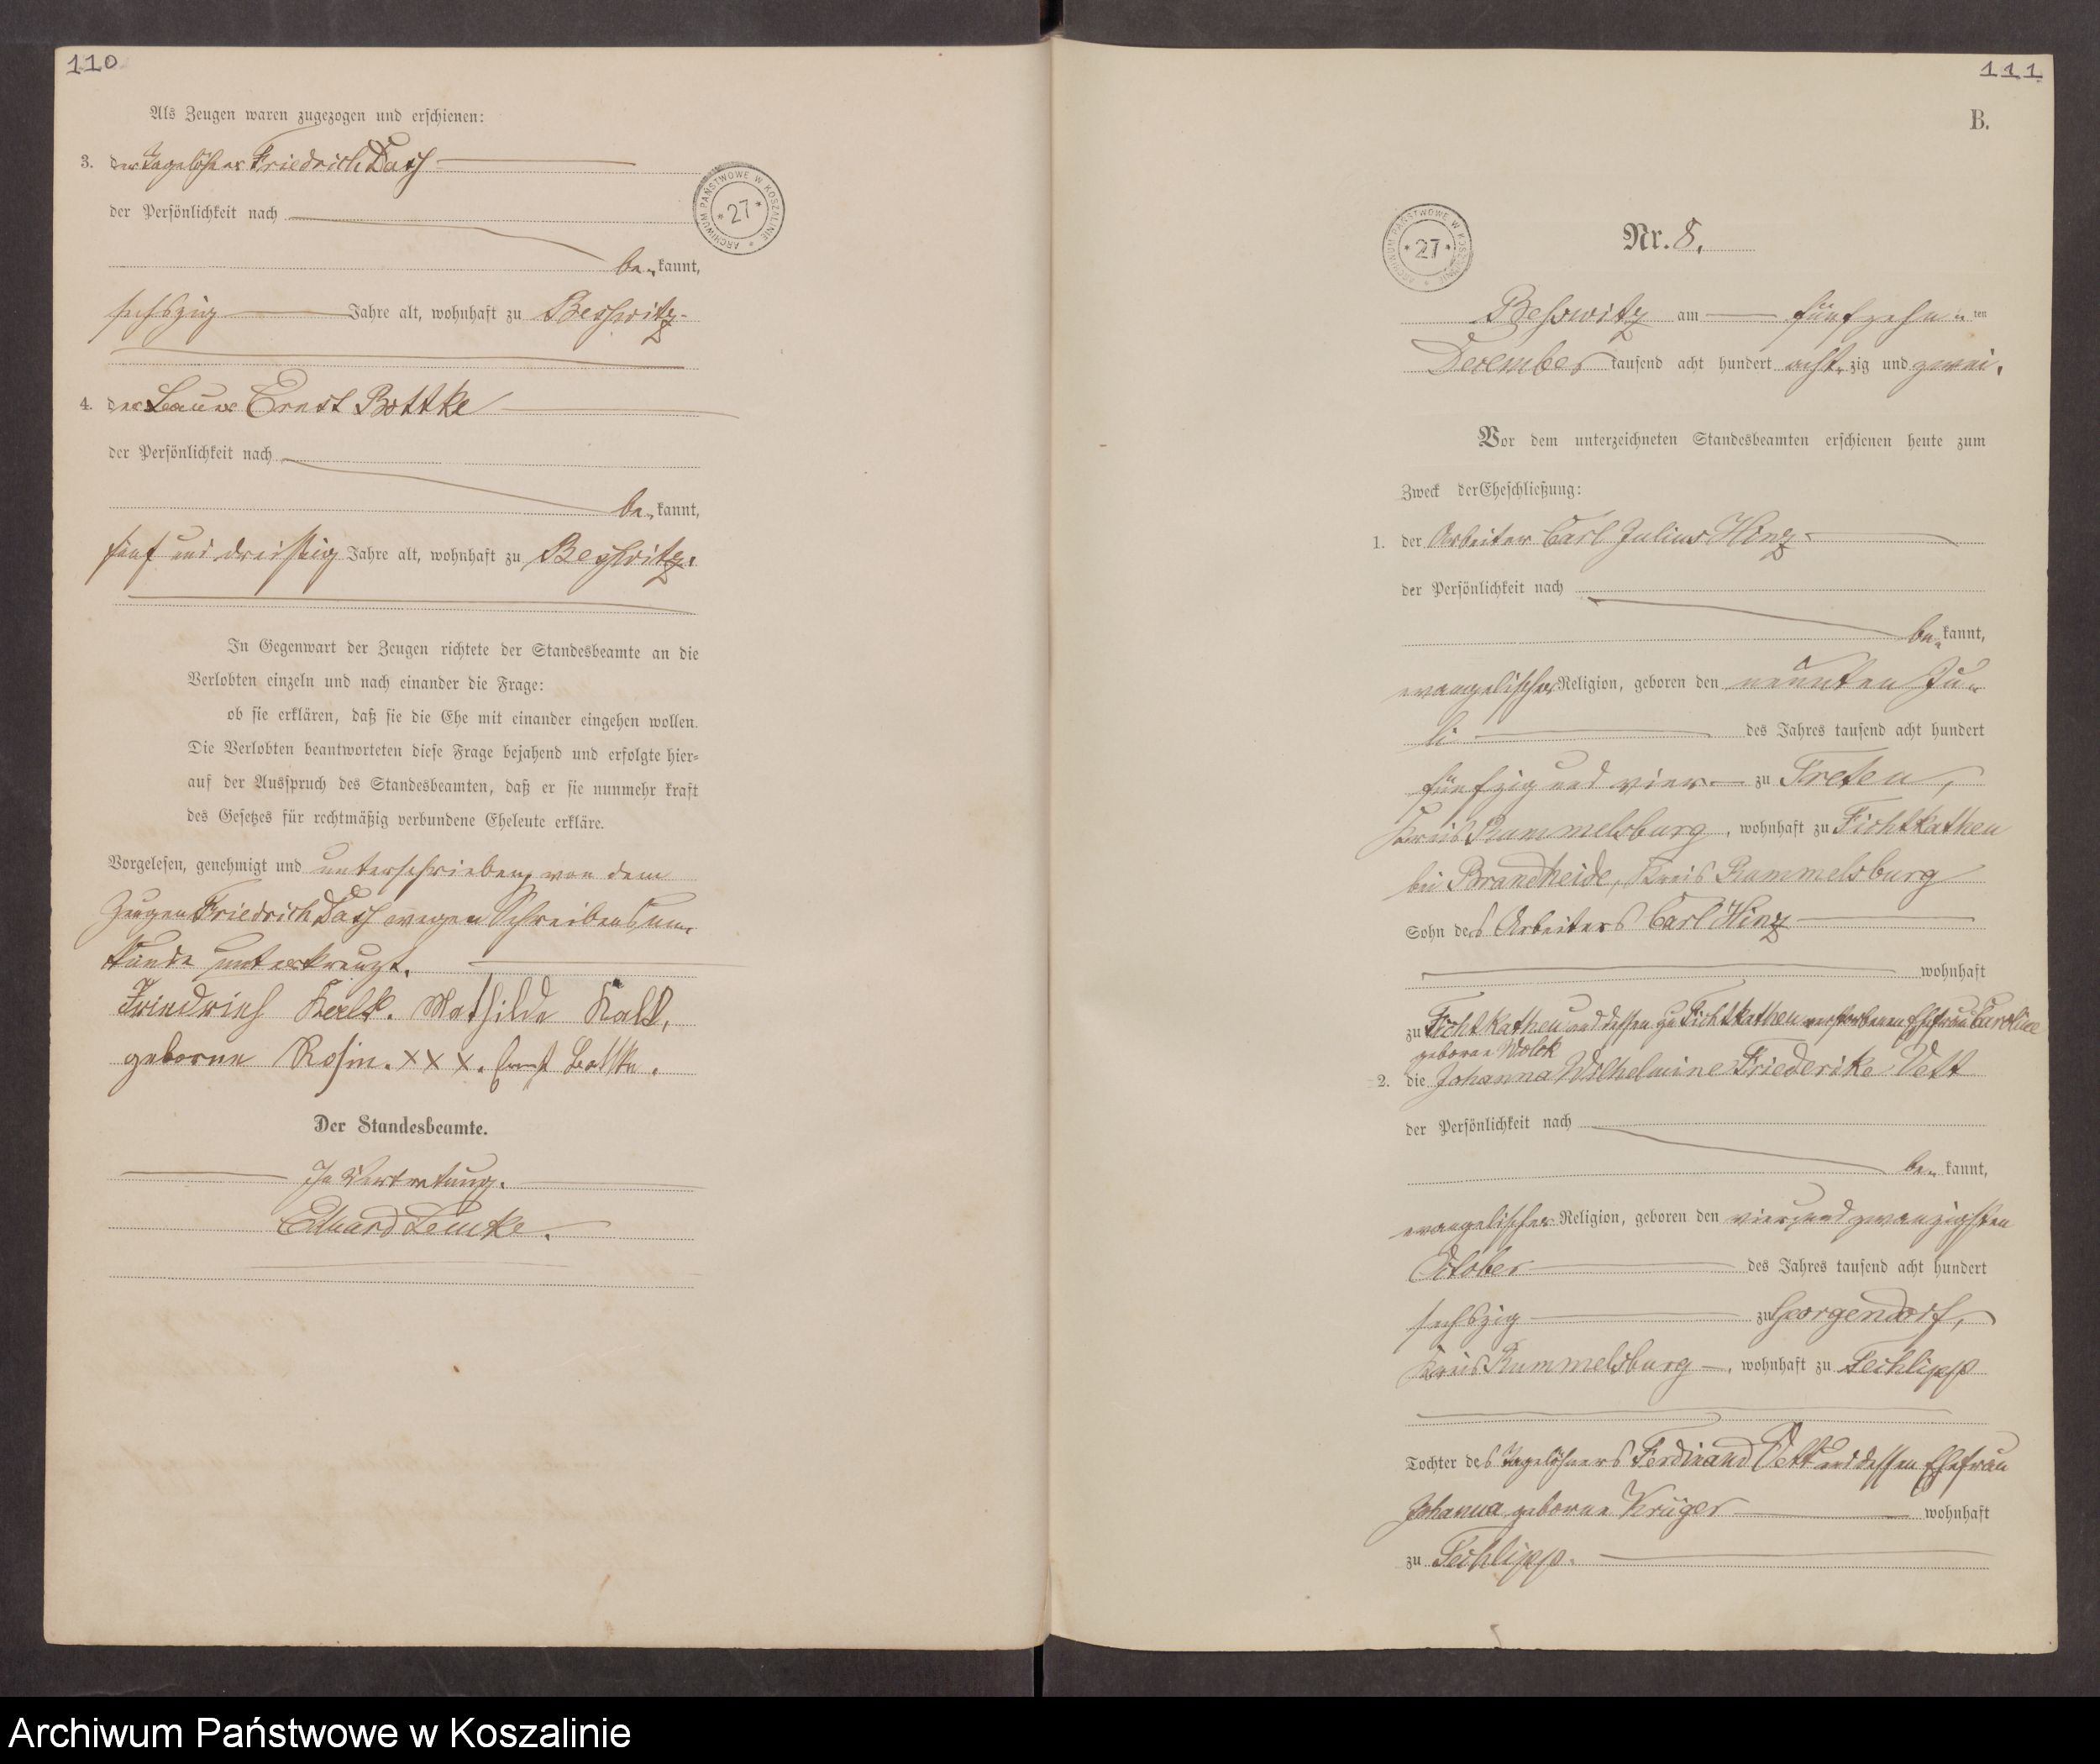 110
Als Zeugen waren zugezogen und erschienen:
3. der Tagelöhner Friedrich Dass
der Persönlichkeit nach
be- kannt,
sechszig Jahre alt, wohnhaft zu Besswitz
4. der Bauer Ernst Bottke
der Persönlichkeit nach
be- kannt,
fünf und dreißig Jahre alt, wohnhaft zu Besswitz.
In Gegenwart der Zeugen richtete der Standesbeamte an die
Verlobten einzeln und nach einander die Frage:
ob sie erklären, daß sie die Ehe mit einander eingehen wollen.
Die Verlobten beantworteten diese Frage bejahend und erfolgte hier-
auf der Ausspruch des Standesbeamten, daß er sie nunmehr kraft
des Gesetzes für rechtmäßig verbundene Eheleute erkläre.
Vorgelesen, genehmigt und unterschrieben, von dem
Zeugen Friedrich Dass wegen Schreibensun-
kunde unterkreuzt.
Friedrich Kalk. Mathilde Kalk,
geborne Rosin. XXX. Ernst Bottke.
Der Standesbeamte.
In Vertretung.
Eduard Lemke.
ARCHIWUM PAŃSTWOWE W KOSZALINIE
* 27 *
111
B.
ARCHIWUM PAŃSTWOWE W KOSZALINIE
* 27 *
Nr. 8.
Besswitz am fünfzehn- ten
December tausend acht hundert acht- zig und zwei.
Vor dem unterzeichneten Standesbeamten erschienen heute zum
Zweck der Eheschließung:
1. der Arbeiter Carl Julius Hinz
der Persönlichkeit nach
be- kannt,
evangelischer Religion, geboren den neunten Ju-
li des Jahres tausend acht hundert
fünfzig und vier zu Treten,
Kreis Rummelsburg, wohnhaft zu Fichtkathen
bei Brandheide, Kreis Rummelsburg
Sohn des Arbeiters Carl Hinz
wohnhaft
zu Fichtkathen und dessen zu Fichtkathen verstorbenen Ehefrau Caroline
geborne Wolck
2. die Johanna Wilhelmine Friederike Vett
der Persönlichkeit nach
be- kannt,
evangelischer Religion, geboren den vier und zwanzigsten
October des Jahres tausend acht hundert
sechszig zu Georgendorf,
Kreis Rummelsburg, wohnhaft zu Techlipp
Tochter des Tagelöhners Ferdinand Vett und dessen Ehefrau
Johanna geborne Krüger wohnhaft
zu Techlipp.
Archiwum Państwowe w Koszalinie